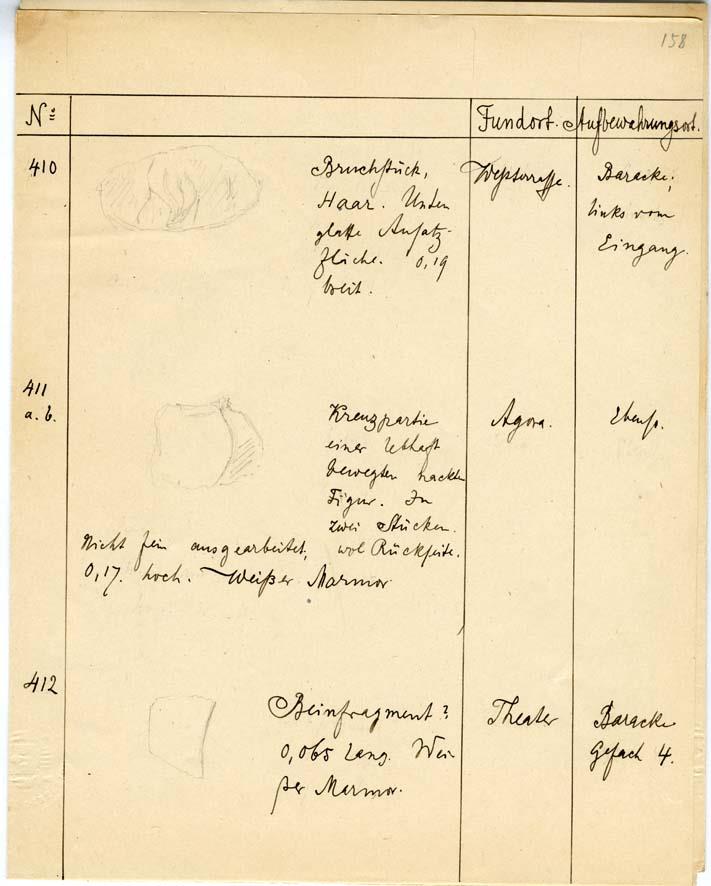 158
Nº Fundort. Aufbewahrungsort.
410 Bruchstück, Westterrasse. Baracke;
Haar. Unten links vom
glatte Ansatz- Eingang.
fläche. 0,19
breit.
411
a. b. Kreuzpartie Agora. Ebenso.
einer lebhaft
bewegten nackten
Figur. In
zwei Stücken.
Nicht fein ausgearbeitet, wol Rückseite.
0,17. hoch. Weißer Marmor
412 Beinfragment? Theater Baracke
0,065 lang. Wei- Gefach 4.
ßer Marmor.